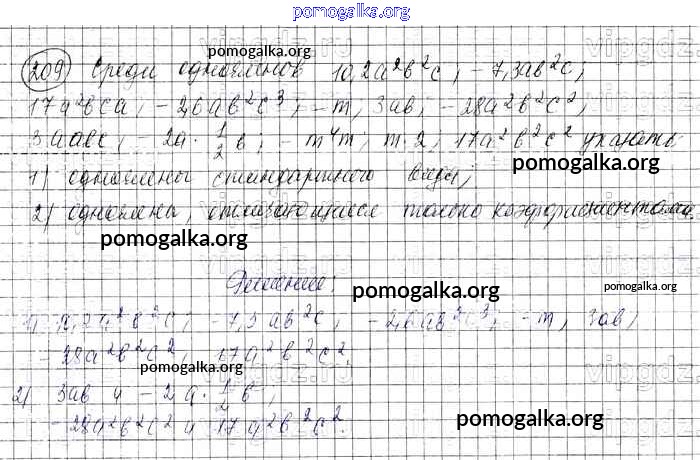 pomogalka.org
209) Среди одночленов 10,2a²b²c; -7,3ab²c;
pomogalka.org
17a²bca; -2,6ab²c³; -m; 3ab; -28a²b²c²;
3aabc; -2a·1/2b; -m⁴m; m·2; 17a²b²c² указать
pomogalka.org
1) одночлены стандартного вида;
2) одночлены, отличающиеся только коэффициентами.
pomogalka.org
Решение:
pomogalka.org
1) a²b²c; -7,3ab²c; -2,6ab²c³; -m; 3ab;
-28a²b²c²; 17a²b²c².
pomogalka.org
2) 3ab и -2a·1/2b;
-28a²b²c² и 17a²b²c².
pomogalka.org
vipgdz.ru